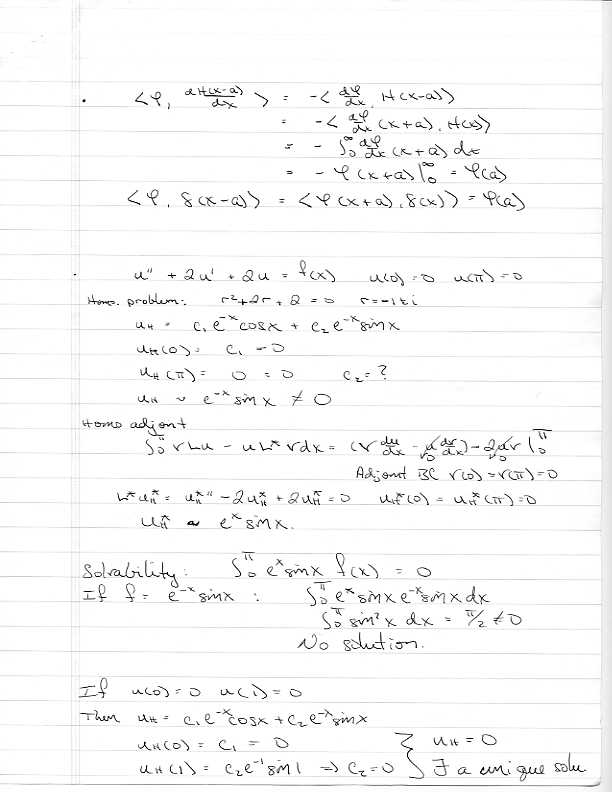 . <φ, dH(x-a)/dx > = -< dφ/dx, H(x-a)>
= -< dφ/dx (x+a), H(x)>
= - ∫₀^∞ dφ/dx (x+a) dx
= - φ(x+a)|₀^∞ = φ(a)
<φ, δ(x-a)> = <φ(x+a), δ(x)> = φ(a)
. u'' + 2u' + 2u = f(x) u(0) = 0 u(π) = 0
Homo. problem: r² + 2r + 2 = 0 r = -1 ± i
u_H = c₁ e^{-x} cos x + c₂ e^{-x} sin x
u_H(0) = c₁ = 0
u_H(π) = 0 = 0 c₂ = ?
u_H ~ e^{-x} sin x ≠ 0
Homo adjoint
∫₀^π v Lu - u L* v dx = (v du/dx - u dv/dx) - 2uv |₀^π
Adjoint BC v(0) = v(π) = 0
L* u_H* = u_H*'' - 2u_H*' + 2u_H* = 0 u_H*(0) = u_H*(π) = 0
u_H* ~ e^x sin x.
Solvability: ∫₀^π e^x sin x f(x) = 0
If f = e^{-x} sin x : ∫₀^π e^x sin x e^{-x} sin x dx
∫₀^π sin² x dx = π/2 ≠ 0
No solution.
If u(0) = 0 u(1) = 0
Then u_H = c₁ e^{-x} cos x + c₂ e^{-x} sin x
u_H(0) = c₁ = 0 } u_H = 0
u_H(1) = c₂ e^{-1} sin 1 => c₂ = 0 } ∃ a unique soln.